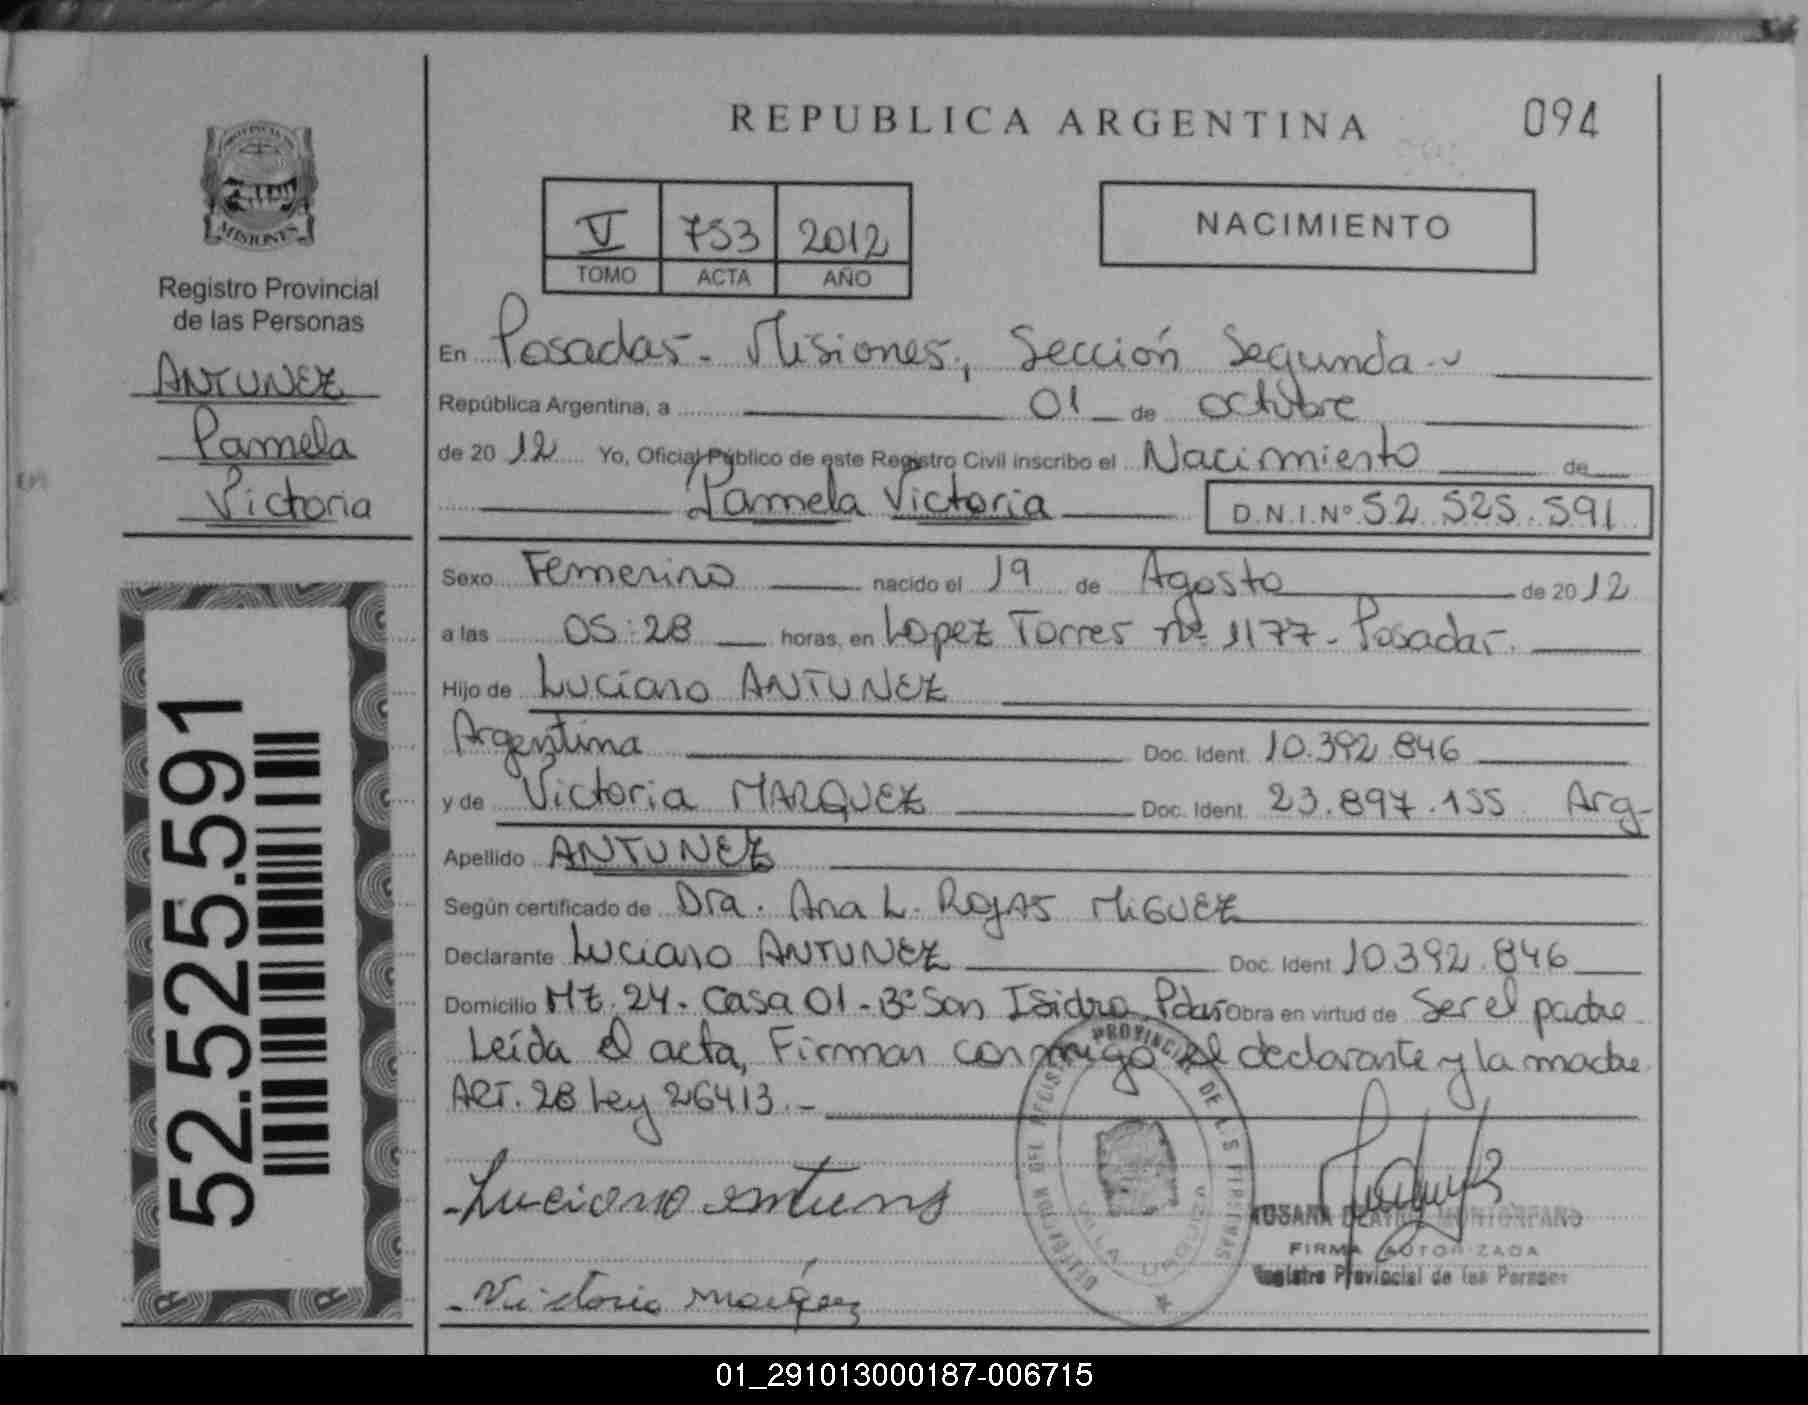 REPUBLICA ARGENTINA
094
PROVINCIA
MISIONES
Registro Provincial
de las Personas
ANTUNEZ
Pamela
Victoria
V 753 2012
TOMO ACTA AÑO
NACIMIENTO
En Posadas - Misiones, Sección Segunda.
República Argentina, a 01 de octubre
de 2012 Yo, Oficial Público de este Registro Civil inscribo el Nacimiento de
Pamela Victoria D.N.I.Nº 52.525.591
Sexo Femenino nacido el 19 de Agosto de 2012
a las 05:28 horas, en Lopez Torres nº 1177 - Posadas.
Hijo de Luciano ANTUNEZ
Argentina Doc. Ident. 10.392.846
y de Victoria MARQUEZ Doc. Ident. 23.897.155 Arg-
Apellido ANTUNEZ
Según certificado de Dra. Ana L. Rojas MIGUEZ
Declarante Luciano ANTUNEZ Doc. Ident 10.392.846
Domicilio Mz. 24 - Casa 01 - Bº San Isidro Pdas Obra en virtud de Ser el padre
Leída el acta, Firman conmigo el declarante y la madre
ART. 28 Ley 26413.-
Luciano
Victoria
DEL REGISTRO PROVINCIAL DE LAS PERSONAS
VILLA URQUIZA
ROSANA BEATRIZ MONTORFANO
FIRMA AUTORIZADA
Registro Provincial de las Personas
52.525.591
01_291013000187-006715